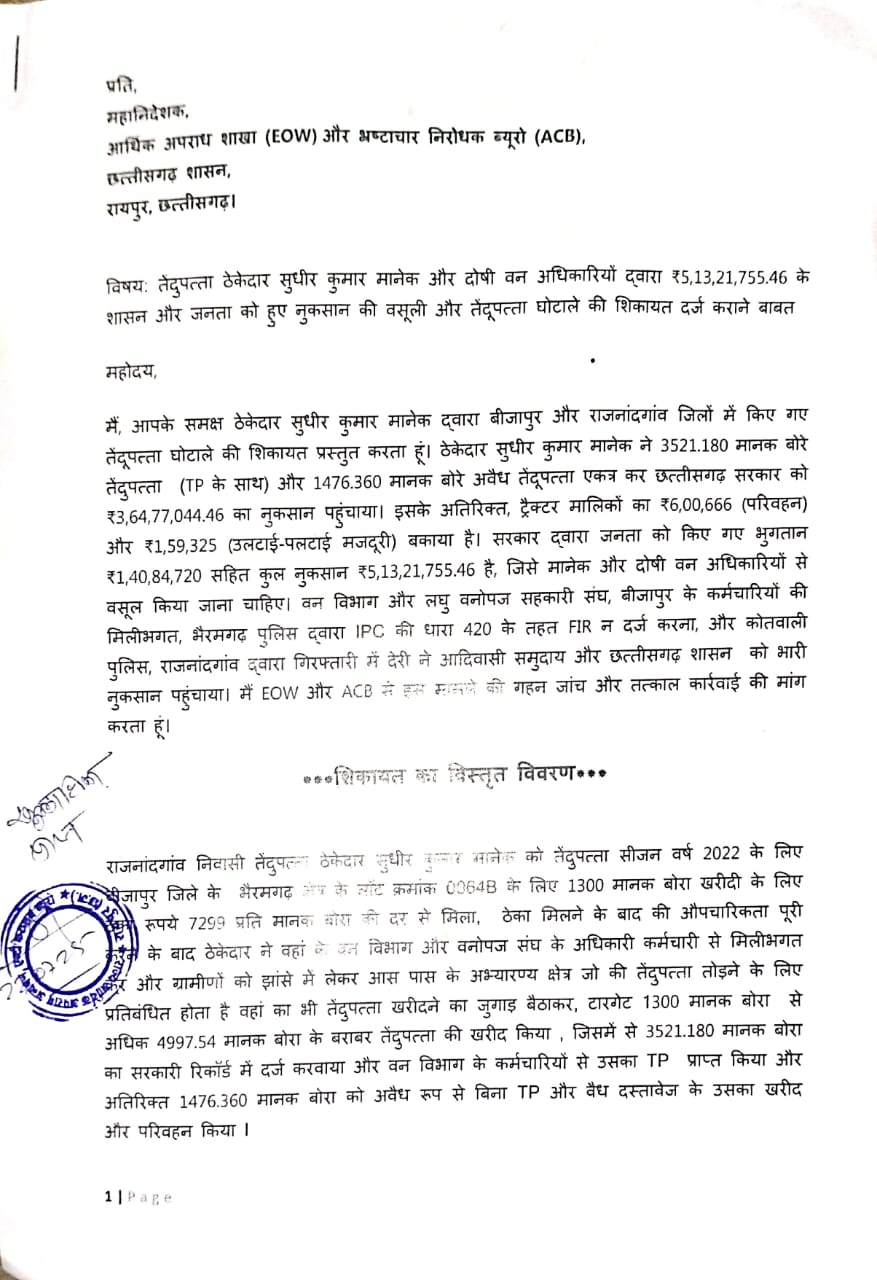 प्रति,
महानिदेशक,
आर्थिक अपराध शाखा (EOW) और भ्रष्टाचार निरोधक ब्यूरो (ACB),
छत्तीसगढ़ शासन,
रायपुर, छत्तीसगढ़।
विषय: तेंदुपत्ता ठेकेदार सुधीर कुमार मानेक और दोषी वन अधिकारियों द्वारा ₹5,13,21,755.46 के
शासन और जनता को हुए नुकसान की वसूली और तेंदूपत्ता घोटाले की शिकायत दर्ज कराने बाबत
महोदय,
मैं, आपके समक्ष ठेकेदार सुधीर कुमार मानेक द्वारा बीजापुर और राजनांदगांव जिलों में किए गए
तेंदूपत्ता घोटाले की शिकायत प्रस्तुत करता हूं। ठेकेदार सुधीर कुमार मानेक ने 3521.180 मानक बोरे
तेंदुपत्ता (TP के साथ) और 1476.360 मानक बोरे अवैध तेंदूपत्ता एकत्र कर छत्तीसगढ़ सरकार को
₹3,64,77,044.46 का नुकसान पहुंचाया। इसके अतिरिक्त, ट्रैक्टर मालिकों का ₹6,00,666 (परिवहन)
और ₹1,59,325 (उलटाई-पलटाई मजदूरी) बकाया है। सरकार द्वारा जनता को किए गए भुगतान
₹1,40,84,720 सहित कुल नुकसान ₹5,13,21,755.46 है, जिसे मानेक और दोषी वन अधिकारियों से
वसूल किया जाना चाहिए। वन विभाग और लघु वनोपज सहकारी संघ, बीजापुर के कर्मचारियों की
मिलीभगत, भैरमगढ़ पुलिस द्वारा IPC की धारा 420 के तहत FIR न दर्ज करना, और कोतवाली
पुलिस, राजनांदगांव द्वारा गिरफ्तारी में देरी ने आदिवासी समुदाय और छत्तीसगढ़ शासन को भारी
नुकसान पहुंचाया। मैं EOW और ACB से इस मामले की गहन जांच और तत्काल कार्रवाई की मांग
करता हूं।
•••शिकायत का विस्तृत विवरण•••
राजनांदगांव निवासी तेंदुपत्ता ठेकेदार सुधीर कुमार मानेक को तेंदुपत्ता सीजन वर्ष 2022 के लिए
बीजापुर जिले के भैरमगढ़ क्षेत्र के लॉट क्रमांक 0064B के लिए 1300 मानक बोरा खरीदी के लिए
रूपये 7299 प्रति मानक बोरा की दर से मिला, ठेका मिलने के बाद की औपचारिकता पूरी
के बाद ठेकेदार ने वहां के वन विभाग और वनोपज संघ के अधिकारी कर्मचारी से मिलीभगत
कर और ग्रामीणों को झांसे में लेकर आस पास के अभ्यारण्य क्षेत्र जो की तेंदुपत्ता तोड़ने के लिए
प्रतिबंधित होता है वहां का भी तेंदुपत्ता खरीदने का जुगाड़ बैठाकर, टारगेट 1300 मानक बोरा से
अधिक 4997.54 मानक बोरा के बराबर तेंदुपत्ता की खरीद किया , जिसमें से 3521.180 मानक बोरा
का सरकारी रिकॉर्ड में दर्ज करवाया और वन विभाग के कर्मचारियों से उसका TP प्राप्त किया और
अतिरिक्त 1476.360 मानक बोरा को अवैध रूप से बिना TP और वैध दस्तावेज के उसका खरीद
और परिवहन किया ।
1 | Page